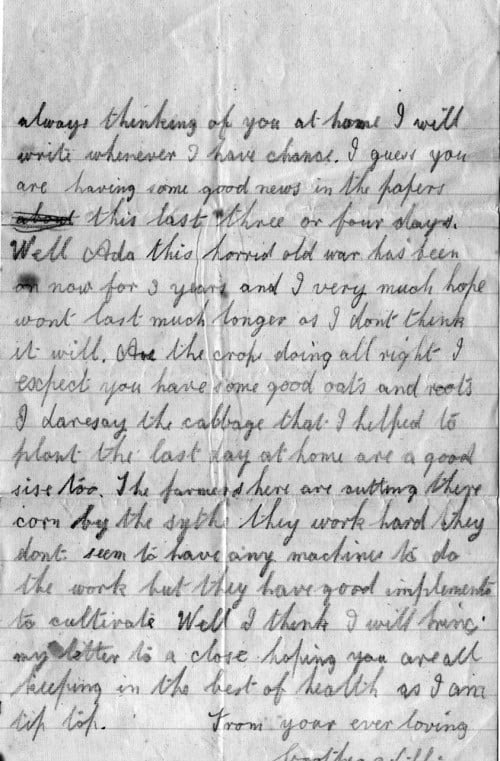 always thinking of you at home I will
write whenever I have chance. I guess you
are having some good news in the papers
about this last three or four days.
Well Ada this horrid old war has been
on now for 3 years and I very much hope
wont last much longer as I dont think
it will. Are the crops doing all right I
expect you have some good oats and roots
I daresay the cabbage that I helped to
plant the last day at home are a good
sise too. The farmers here are cutting there
corn by the sythe they work hard they
dont seem to have any machines to do
the work but they have good implements
to cultivate Well I think I will bring
my letter to a close hoping you are all
keeping in the best of health as I am
tip top. From your ever loving